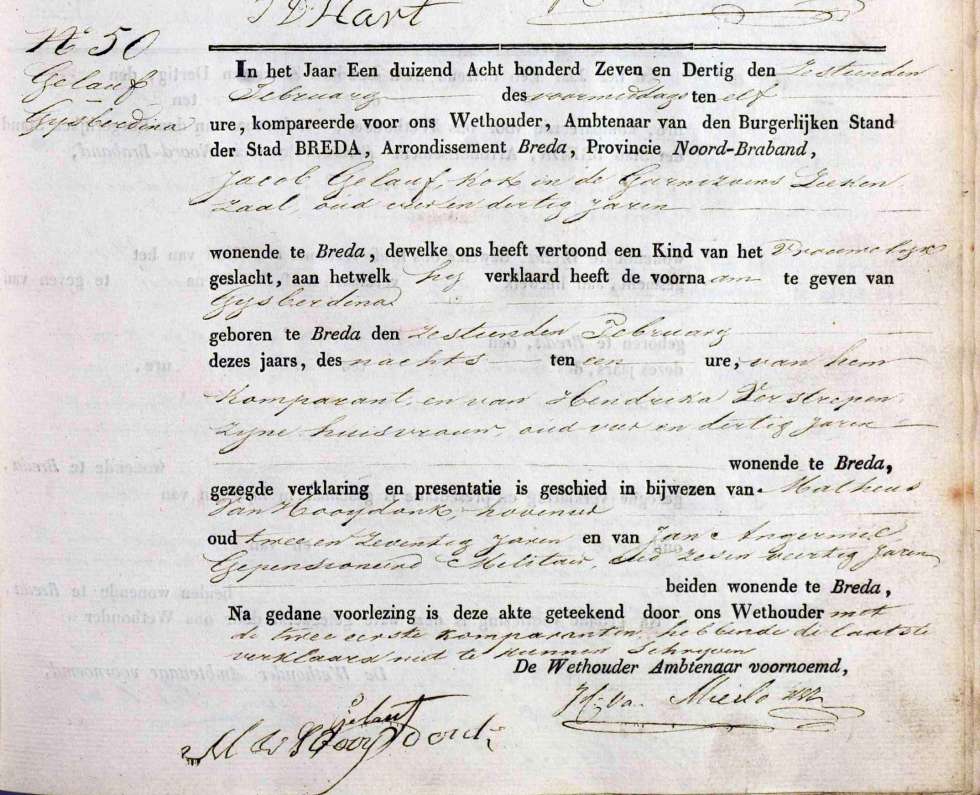 J D Hart
No 50
Gelauf
Gysberdina
In het Jaar Een duizend Acht honderd Zeven en Dertig den Zestienden
February des voormiddags ten elf
ure, kompareerde voor ons Wethouder, Ambtenaar van den Burgerlijken Stand
der Stad BREDA, Arrondissement Breda, Provincie Noord-Braband,
Jacob Gelauf, kok in de Garnizoens Zieken
zaal, oud vier en dertig Jaren
wonende te Breda, dewelke ons heeft vertoond een Kind van het Vrouwelyk
geslacht, aan hetwelk hy verklaard heeft de voornaam te geven van
Gysberdina
geboren te Breda den Zestienden February
dezes jaars, des nachts ten een ure, van hem
Komparant, en van Hendrika Verstrepen
zyne huisvrouw, oud vier en dertig Jaren
wonende te Breda,
gezegde verklaring en presentatie is geschied in bijwezen van Matheus
Van Hooydonk, hovenier
oud twee en zeventig Jaren en van Jan Angermil,
Gepensioneerd Militair, oud zeven veertig Jaren
beiden wonende te Breda,
Na gedane voorlezing is deze akte geteekend door ons Wethouder met
de twee eerste komparanten, hebbende de laatste
verklaard niet te kunnen Schryven
De Wethouder Ambtenaar voornoemd,
Mierlo
Gelauf
M V Hooydonk